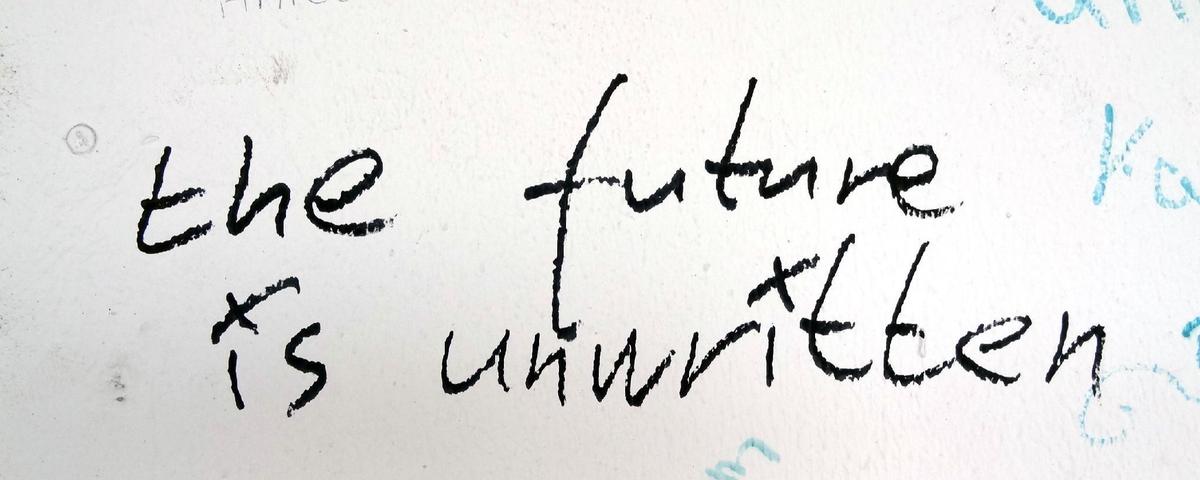 the future
is unwritten